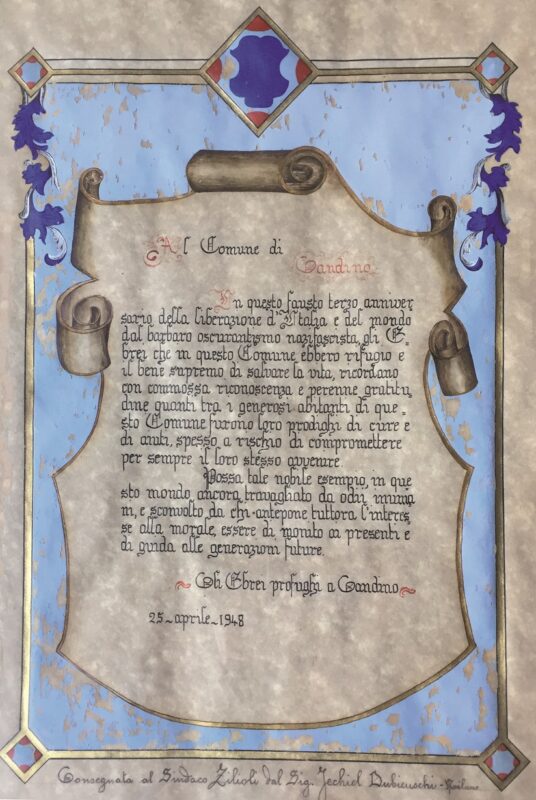 Al Comune di
Gandino
In questo fausto terzo anniver
sario della liberazione d'Italia e del mondo
dal barbaro oscurantismo nazifascista, gli E-
brei che in questo Comune ebbero rifugio e
il bene supremo di salvare la vita, ricordano
con commossa riconoscenza e perenne gratitu
dine quanti tra i generosi abitanti di que-
sto Comune furono loro prodighi di cure e
di aiuti, spesso a rischio di compromettere
per sempre il loro stesso avvenire.
Possa tale nobile esempio, in que
sto mondo ancora travagliato da odii inuma
ni, e sconvolto da chi antepone tuttora l'interes
se alla morale, essere di monito ai presenti e
di guida alle generazioni future.
~ Gli Ebrei profughi a Gandino ~
25-aprile-1948
Consegnata al Sindaco Zilioli dal Sig. Jechiel Dubienschi - Milano